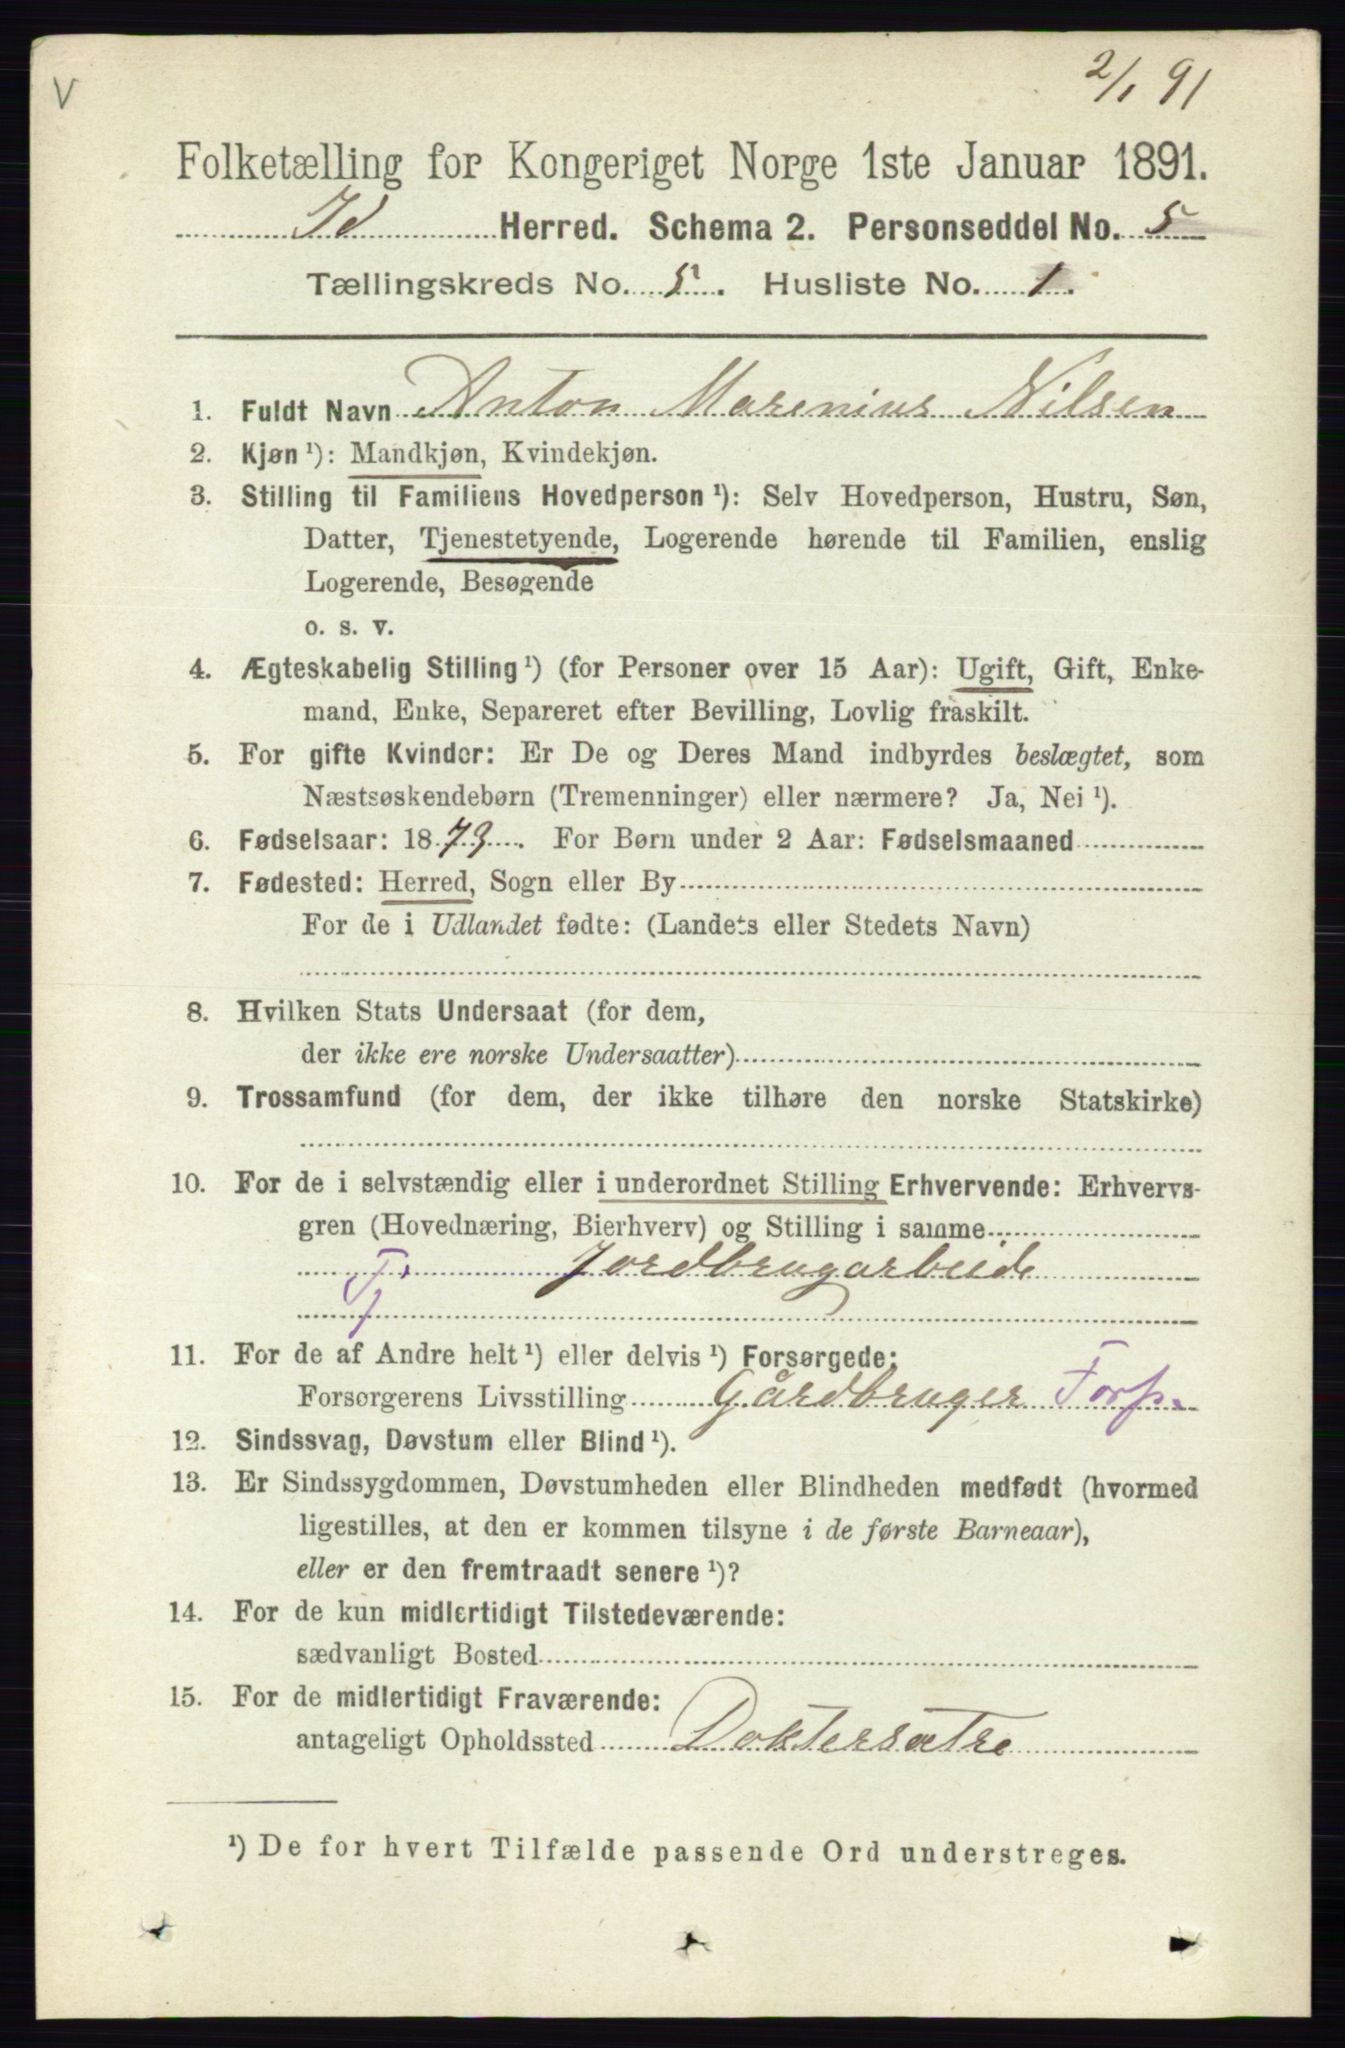 V
2/1 91
Folketælling for Kongeriget Norge 1ste Januar 1891.
Id Herred. Schema 2. Personseddel No. 5
Tællingskreds No. 5. Husliste No. 1.
1. Fuldt Navn Anton Marenius Nilsen
2. Kjøn ¹): Mandkjøn, Kvindekjøn.
3. Stilling til Familiens Hovedperson ¹): Selv Hovedperson, Hustru, Søn,
Datter, Tjenestetyende, Logerende hørende til Familien, enslig
Logerende, Besøgende
o. s. v.
4. Ægteskabelig Stilling ¹) (for Personer over 15 Aar): Ugift, Gift, Enke-
mand, Enke, Separeret efter Bevilling, Lovlig fraskilt.
5. For gifte Kvinder: Er De og Deres Mand indbyrdes beslægtet, som
Næstsøskendebørn (Tremenninger) eller nærmere? Ja, Nei ¹).
6. Fødselsaar: 1873. For Børn under 2 Aar: Fødselsmaaned
7. Fødested: Herred, Sogn eller By
For de i Udlandet fødte: (Landets eller Stedets Navn)
8. Hvilken Stats Undersaat (for dem,
der ikke ere norske Undersaatter)
9. Trossamfund (for dem, der ikke tilhøre den norske Statskirke)
10. For de i selvstændig eller i underordnet Stilling Erhvervende: Erhvervs-
gren (Hovednæring, Bierhverv) og Stilling i samme
Tj Jordbrugarbeide
11. For de af Andre helt ¹) eller delvis ¹) Forsørgede:
Forsørgerens Livsstilling Gårdbruger Forp.
12. Sindssvag, Døvstum eller Blind ¹).
13. Er Sindssygdommen, Døvstumheden eller Blindheden medfødt (hvormed
ligestilles, at den er kommen tilsyne i de første Barneaar),
eller er den fremtraadt senere ¹)?
14. For de kun midlertidigt Tilstedeværende:
sædvanligt Bosted
15. For de midlertidigt Fraværende:
antageligt Opholdssted Doktersætre
¹) De for hvert Tilfælde passende Ord understreges.